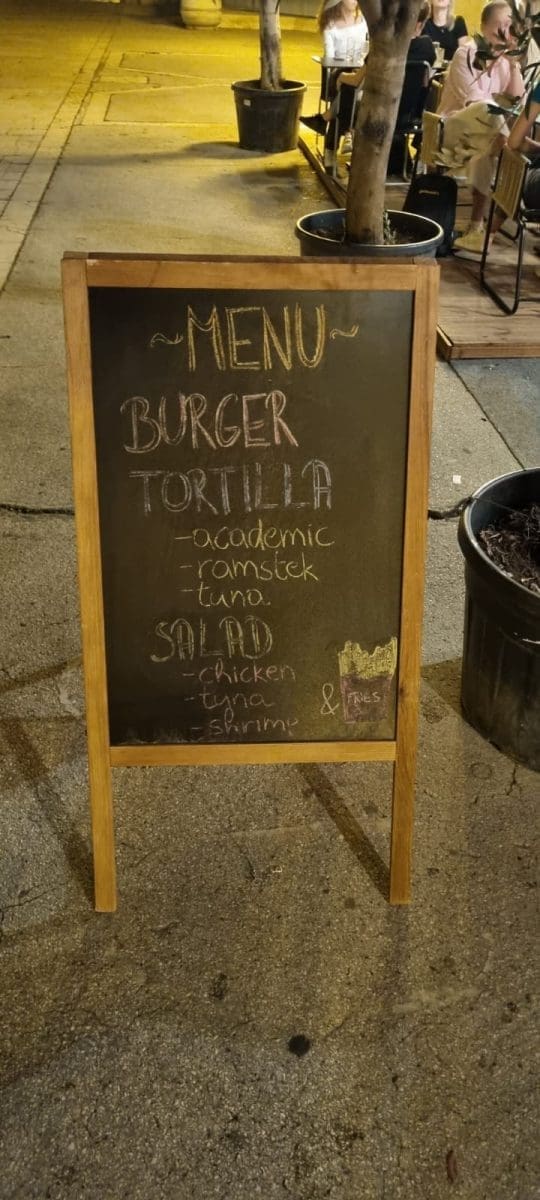 ~MENU~
BURGER
TORTILLA
-academic
-ramstek
-tuna
SALAD
-chicken
-tyna
-shrimp
& FRIES